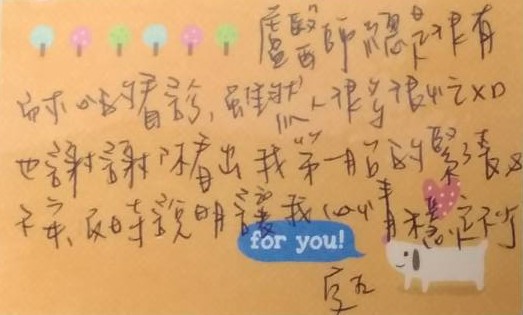 盧醫師總是很有
耐心的看診,雖然人很多很忙XD
也謝謝你看出我第一胎的緊張及
不安,及時說明讓我心情穩定不少
for you!